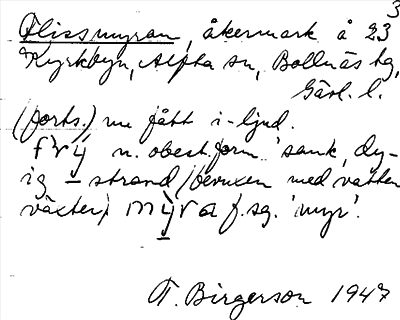 3
Flissmyran, åkermark å 23
Kyrkbyn, Alfta sn, Bollnäs tg,
Gävl. l.
(forts.) nu fått i-ljud.
frÿ n. obest. form 'sank, dy-
ig strand (bevuxen med vatten
växter)' mÿra f. sg. 'myr'.
T. Birgerson 1947